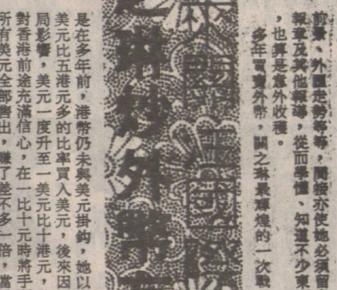 前景、外圍走勢等等，間接亦使她必須留
報章及其他報導，從而學懂、知道不少東
，也算是意外收穫。
多年買賣外幣，關之琳最輝煌的一次戰
之琳炒外幣
是在多年前，港幣仍未與美元掛鈎，她以
美元比五港元多的比率買入美元，後來因
局影響，美元一度升至一美元比十港元，
對香港前途充滿信心，在一比十元時將手
所有美元全部售出，賺了差不多一倍，當